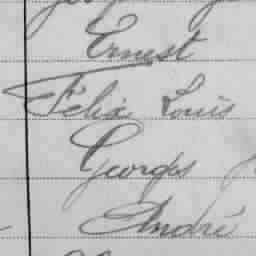 Ernest
Félix Louis
Georges
André